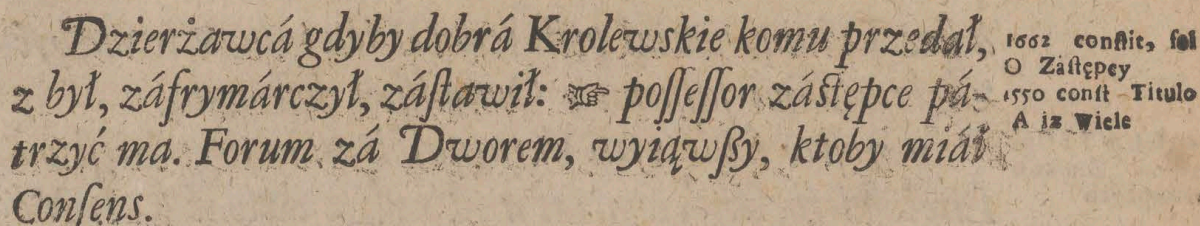 Dzierżawcá gdyby dobrá Krolewskie komu przedał,
z był, záfrymárczył, záſtawił: ☞ poſſeſſor záſtępce pá-
trzyć ma. Forum zá Dworem, wyiąwſzy, ktoby miáł
Conſens.
1662 conſtit, fol
O Záſtępcy
1550 conſt Titulo
A iz Wiele